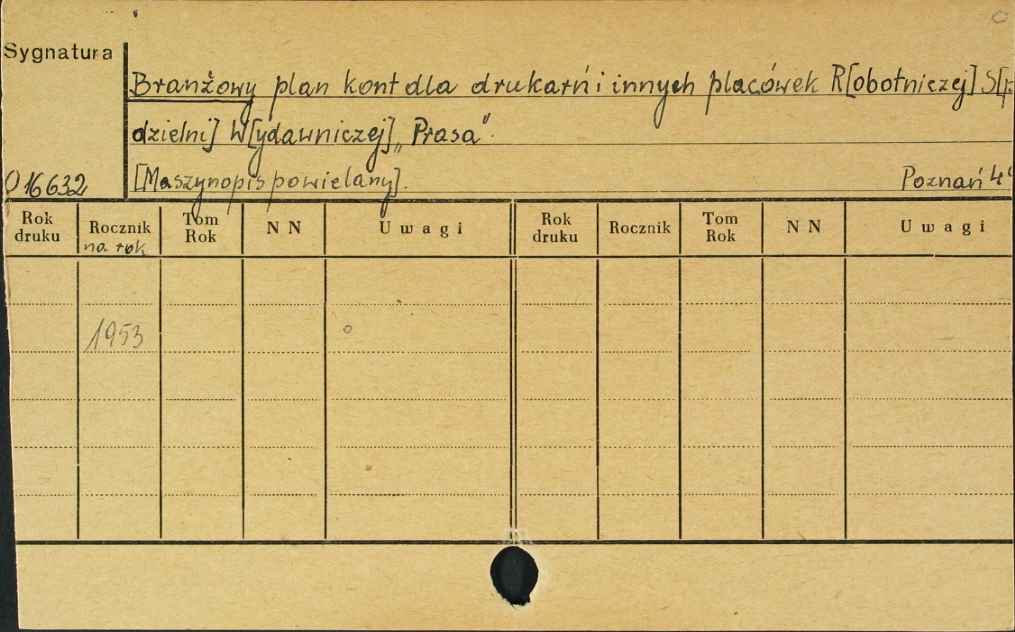 Sygnatura
Branżowy plan kont dla drukarń i innych placówek R[obotniczej] S[p
dzielni] W[ydawniczej] „Prasa".
O 16632 [Maszynopis powielany]. Poznań 4°
Rok druku Rocznik Tom Rok N N Uwagi Rok druku Rocznik Tom Rok N N Uwagi
na rok
1953